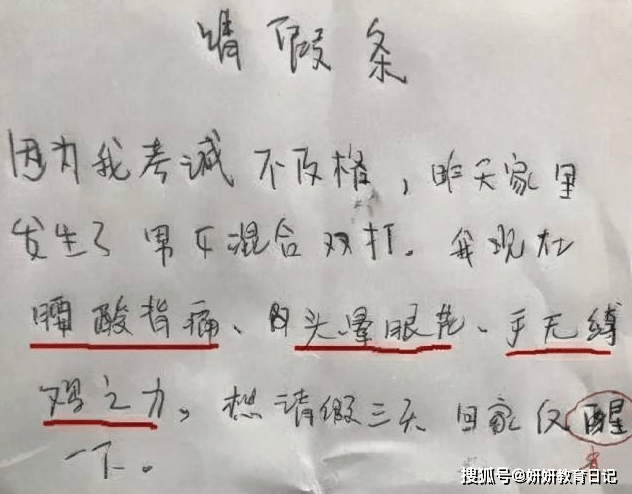 请假条
因为我考试不及格,昨天家里
发生了男女混合双打。我现在
腰酸背痛、头晕眼花、手无缚
鸡之力,想请假三天回家仅醒
一下。
搜狐号@妍妍教育日记